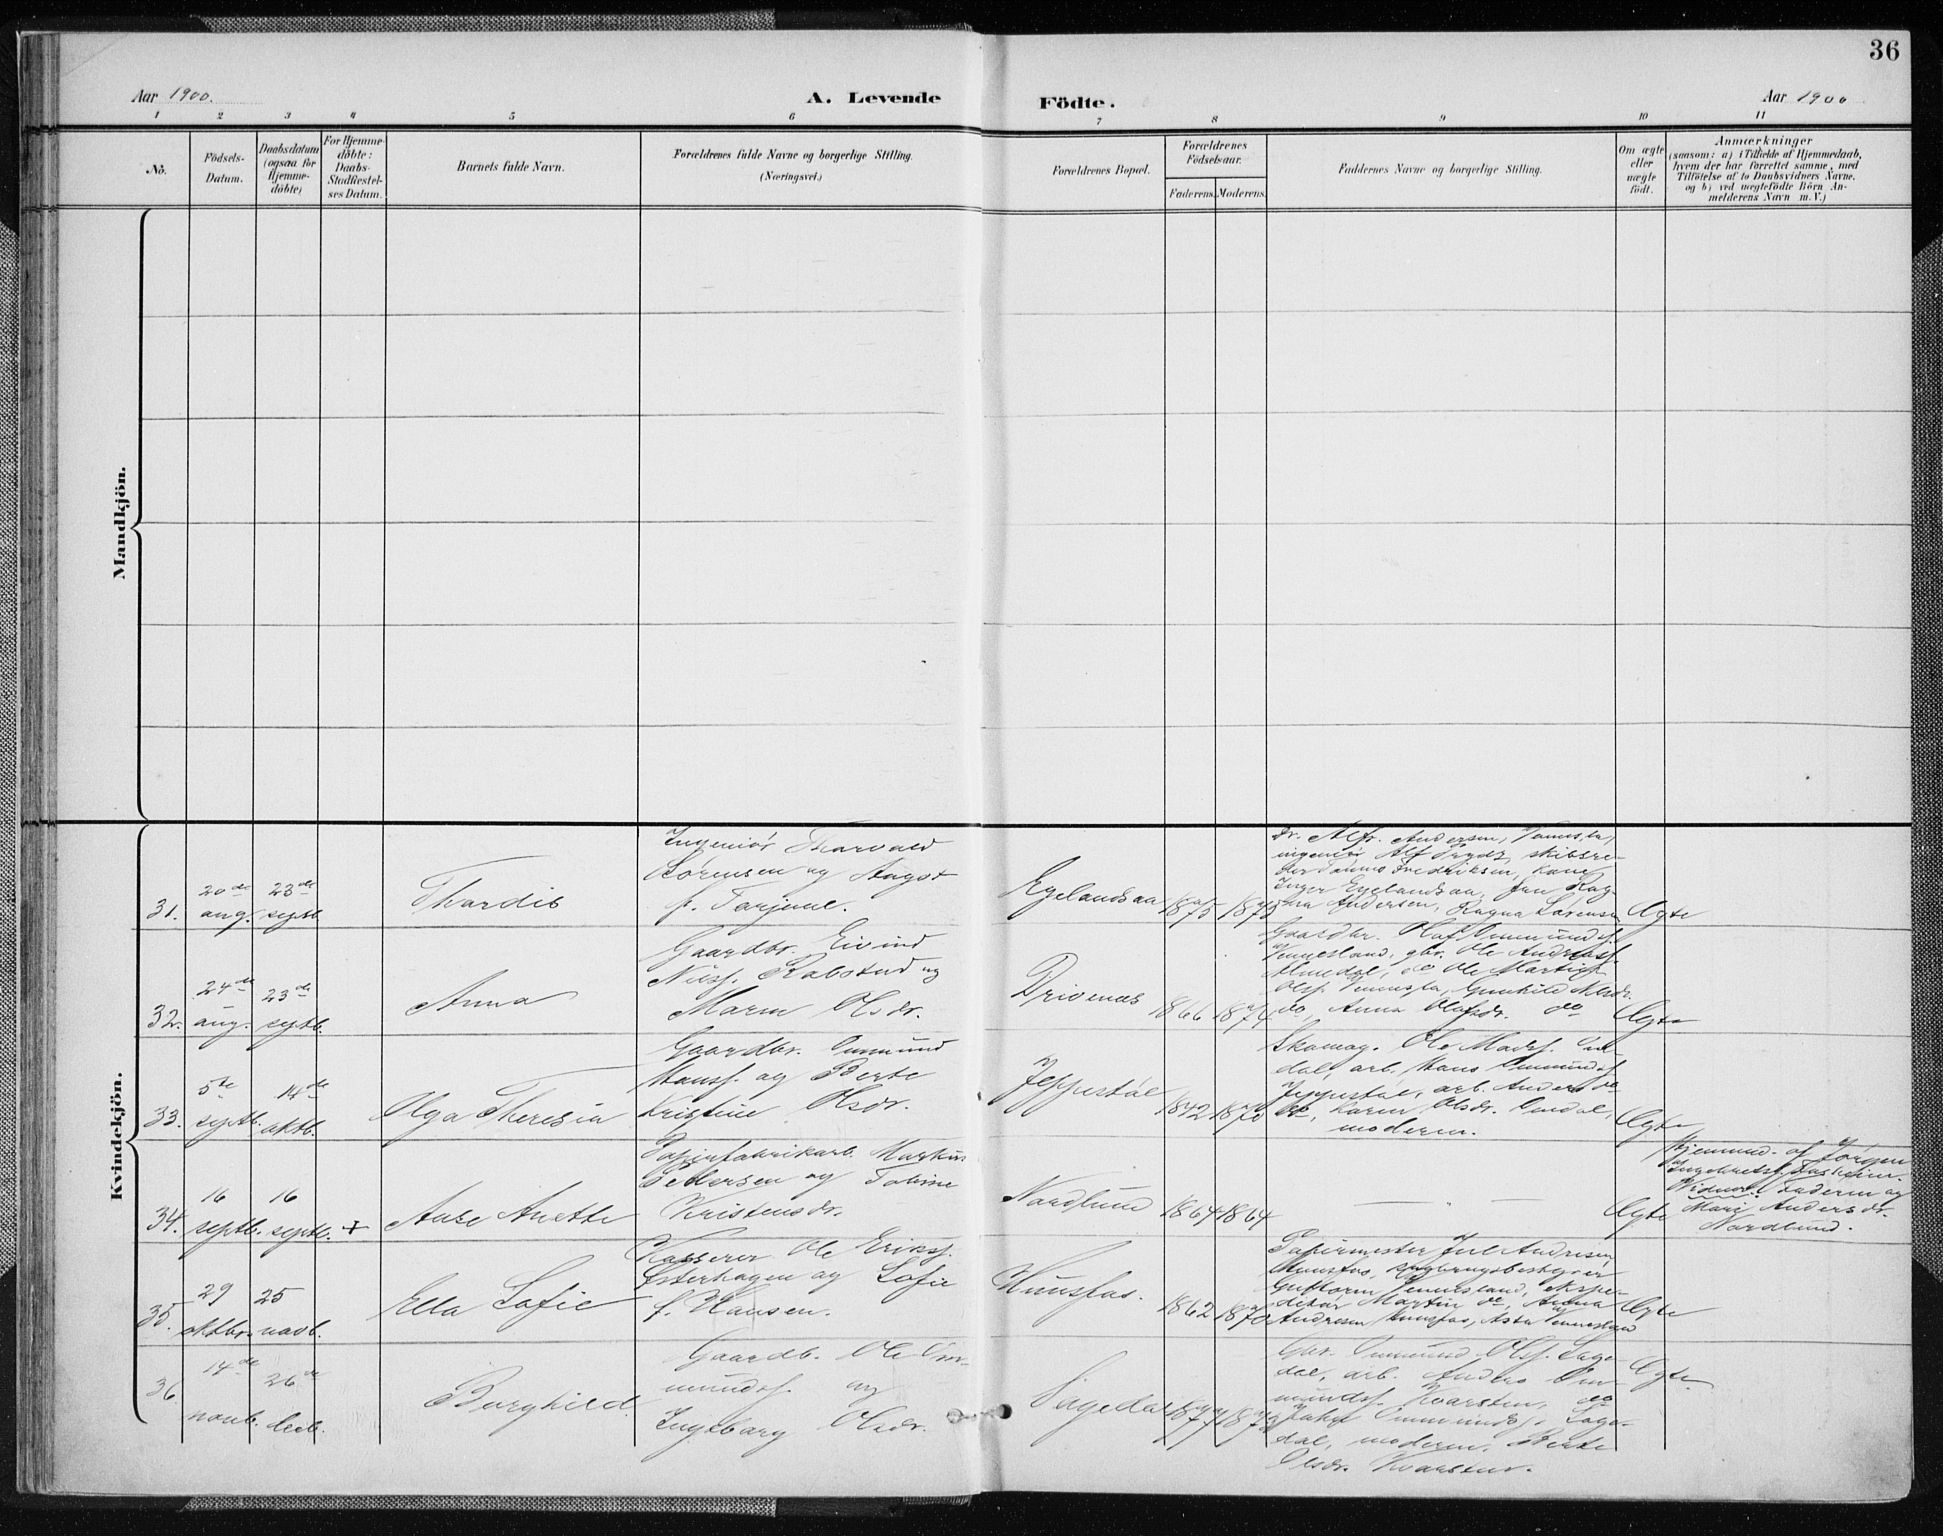 36
Aar 1900.
A. Levende
Födte.
Aar 1900
1
2
3
4
5
6
7
8
9
10
11
No.
Födsels-
Datum.
Daabsdatum
(ogsaa for
Hjemme-
döbte)
For Hjemme-
döbte:
Daabs-
Stadfestel-
ses Datum.
Barnets fulde Navn.
Forældrenes fulde Navne og borgerlige Stilling.
(Næringsvei.)
Forældrenes Bopæl.
Forældrenes
Födselsaar.
Faderens.
Moderens.
Faddernes Navne og borgerlige Stilling.
Om ægte
eller
uægte
födt.
Anmærkninger
(saasom: a) i Tilfælde af Hjemmedaab,
hvem der har forrettet samme, med
Tilföielse af to Daabsvidners Navne,
og b) ved uegtefödte Börn An-
melderens Navn m. V.)
Mandkjön.
Kvindekjön.
31.
20de
aug.
23de
septb.
Thordis
Ingeniør Thorvald
Sørensen og Augst
f. Tanjeme.
Egelandsaa
1875
1875
Dr. Alfr. Andersen, Vennesla,
ingeniør Alf
Fredriksen, Kone
Inger Egelandsaa, frk Rag-
na Andersen, Ragna Sørensen
Ægte
32.
24de
aug.
23de
septb.
Anna
Gaardbr. Eivind
Nilss. Rabstad og
Maren Olsdr.
Drivenes
1866
1874
Gaardbr. Olaf Ommundsf.
Vennesland, gbr. Ole Andreasf.
Almedal, do Ole Martin
Olsf. Vennesla, Gunhild Nilsdr.
do, Anna Olafsdr. do
Ægte
33.
5te
septb.
14de
oktb.
Olga Theresia
Gaardbr. Ommund
Hansf. og Berte
Kristine Olsdr.
Jeppestøl
1842
1870
Skomag. Ole Madsf. Om-
dal, arb. Hans Ommundsf.
Jeppestøl, arb. Anders do
do, Karen Olsdr. Omdal,
moderen.
Ægte
34.
16
septb.
16
septb. +
Aase Anette
Papirfabrikarb. Markus
Pettersen og Tobine
Kristensdr.
Nordlund
1864
1864
Ægte
Hjemmed. af Jørgen
Vidner: Faderen og
Marie Andersdr.
Nordlund.
35.
29
oktbr.
25
novb.
Ella Sofie
Kasserer Ole Eriksf.
Østerhagen og Sofie
f. Hansen.
Hunsfos.
1862
1870
Papirmester Juel Andresen
Hunsfos, sagbrugsbestyrer
Guttorm Vennesland, ekspe-
ditør Martin do, Anna
Andresen Hunsfos, Asta Vennesland
Ægte
36
14de
novb.
26de
decb.
Borghild
Gaardb. Ole Om-
mundsf. og
Ingeborg Olsdr.
Sagedal
1877
1873
Gbr. Ommund Olsf. Sage-
dal, arb. Anders Om-
mundsf. Kvarsten, do
Jakob Ommundsf. Sage-
dal, moderen, Berte
Olsdr. Kvarsten.
Ægte